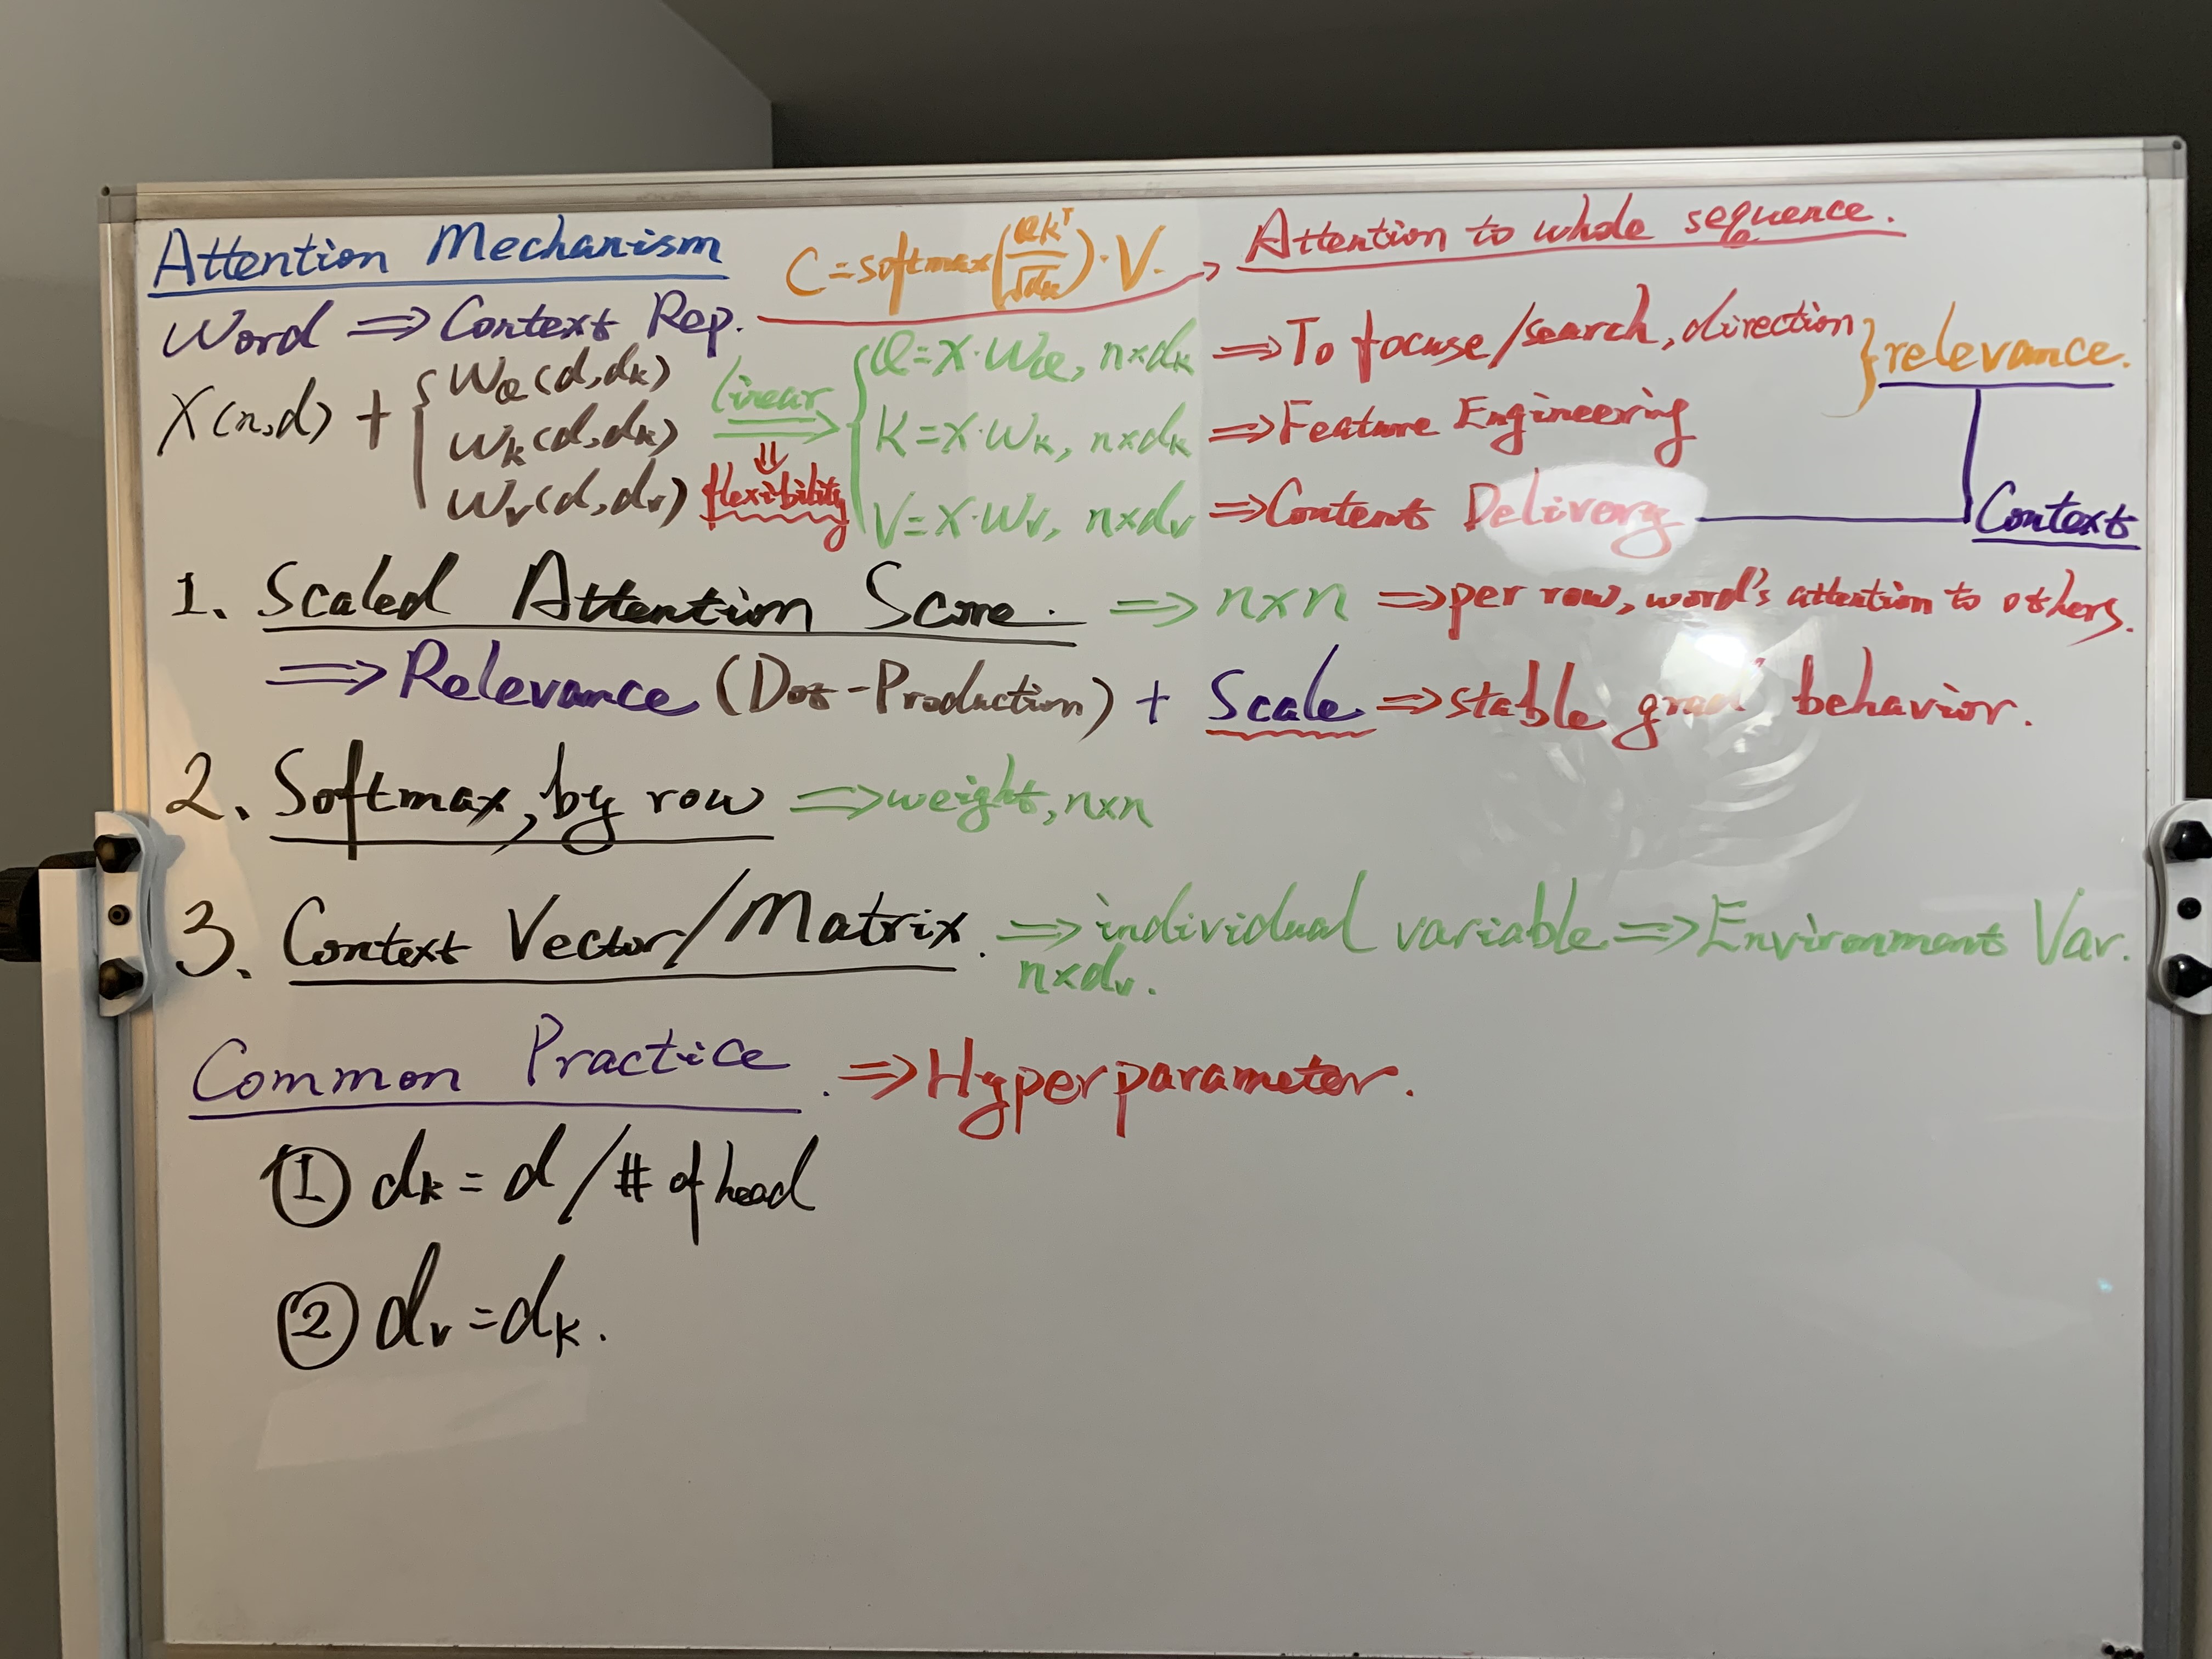 Attention Mechanism
C = softmax(QK^T / √dk) · V.
Attention to whole sequence.
Word ⇒ Context Rep.
X(n,d) + { WQ(d,dk)
Wk(d,dk)
Wv(d,dv)
linear
⇓
flexibility
Q=X·WQ, n×dk ⇒ To focuse/search, direction
K=X·Wk, n×dk ⇒ Feature Engineering
V=X·Wv, n×dv ⇒ Content Delivery
} relevance.
Context
1. Scaled Attention Score. ⇒ n×n ⇒ per row, word's attention to others.
⇒ Relevance (Dot-Production) + Scale ⇒ stable grad' behavior.
2. Softmax, by row ⇒ weight, n×n
3. Context Vector/Matrix. ⇒ individual variable ⇒ Environment Var.
n×dv.
Common Practice. ⇒ Hyperparameter.
① dk = d / # of head
② dv = dk.